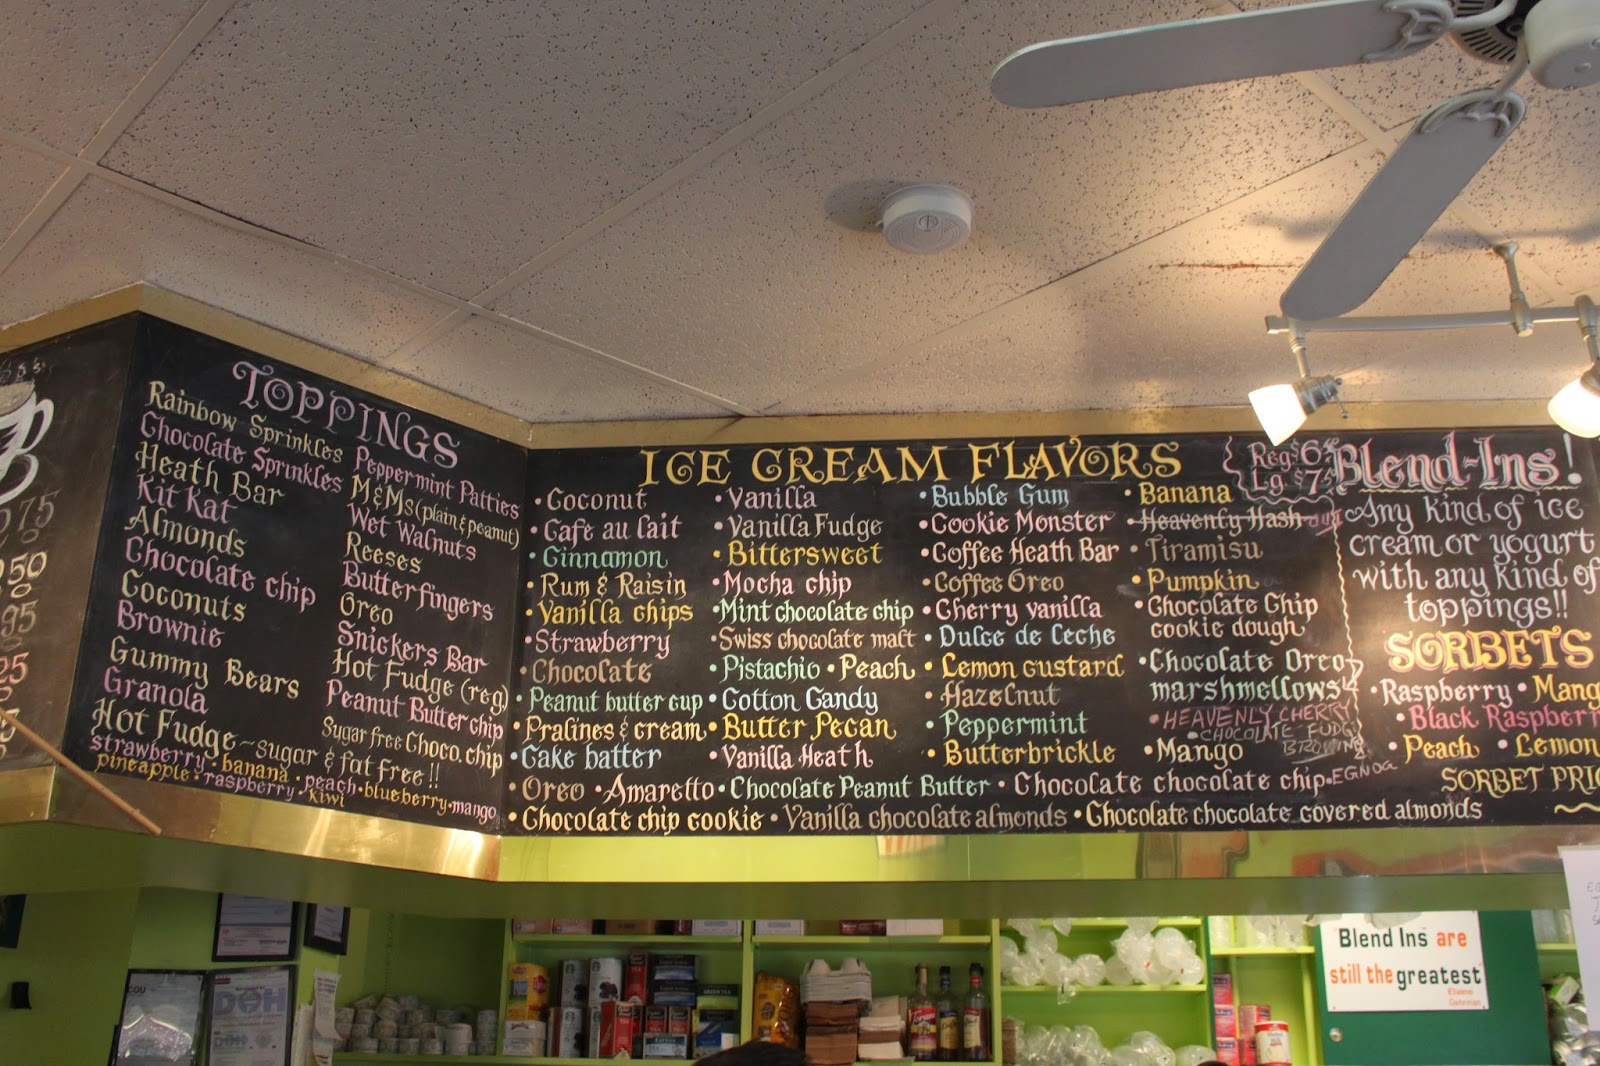 75
50
95
25
TOPPINGS
Rainbow Sprinkles
Chocolate Sprinkles
Heath Bar
Kit Kat
Almonds
Chocolate chip
Coconuts
Brownie
Gummy Bears
Granola
Hot Fudge~sugar & fat free!!
strawberry • banana • peach • blueberry • mango
pineapple • raspberry • kiwi
Peppermint Patties
M&Ms (plain & peanut)
Wet Walnuts
Reeses
Butterfingers
Oreo
Snickers Bar
Hot Fudge (reg)
Peanut Butter chip
Sugar free Choco. chip
ICE CREAM FLAVORS
• Coconut
• Cafe au lait
• Cinnamon
• Rum & Raisin
• Vanilla chips
• Strawberry
• Chocolate
• Peanut butter cup
• Pralines & cream
• Cake batter
• Vanilla
• Vanilla Fudge
• Bittersweet
• Mocha chip
• Mint chocolate chip
• Swiss chocolate malt
• Pistachio • Peach
• Cotton Candy
• Butter Pecan
• Vanilla Heath
• Bubble Gum
• Cookie Monster
• Coffee Heath Bar
• Coffee Oreo
• Cherry vanilla
• Dulce de Leche
• Lemon custard
• Hazelnut
• Peppermint
• Butterbrickle
• Banana
• Heavenly Hash
• Tiramisu
• Pumpkin
• Chocolate Chip
cookie dough
• Chocolate Oreo
marshmellows
• HEAVENLY CHERRY
• CHOCOLATE FUDGE
BROWNIE
• Mango
• Oreo • Amaretto • Chocolate Peanut Butter • Chocolate chocolate chip • EGNOG
• Chocolate chip cookie • Vanilla chocolate almonds • Chocolate chocolate covered almonds
Reg $6
Lg $7
Blend-Ins!
Any kind of ice
cream or yogurt
with any kind of
toppings!!
SORBETS
• Raspberry • Mang
• Black Raspberr
• Peach • Lemon
SORBET PRIC
Blend Ins are
still the greatest
Elaine
Gehrman
DOH
TEA
GREEN TEA
Torani